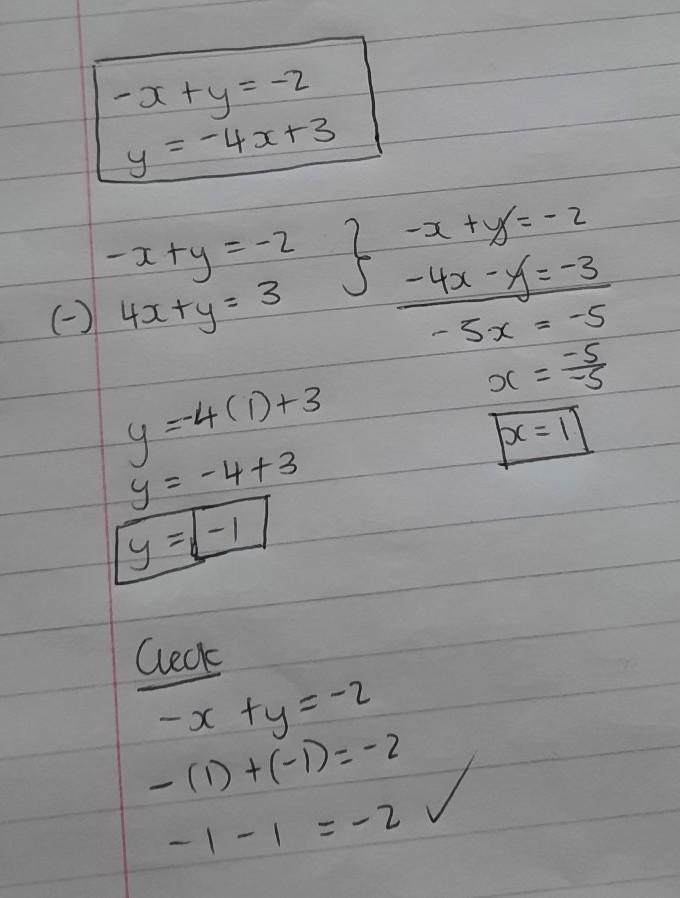 -x + y = -2
y = -4x + 3
-x + y = -2
(-) 4x + y = 3
}
-x + y = -2
-4x - y = -3
-5x = -5
x = -5/-5
x = 1
y = -4(1) + 3
y = -4 + 3
y = -1
Check
-x + y = -2
-(1) + (-1) = -2
-1 - 1 = -2 ✓